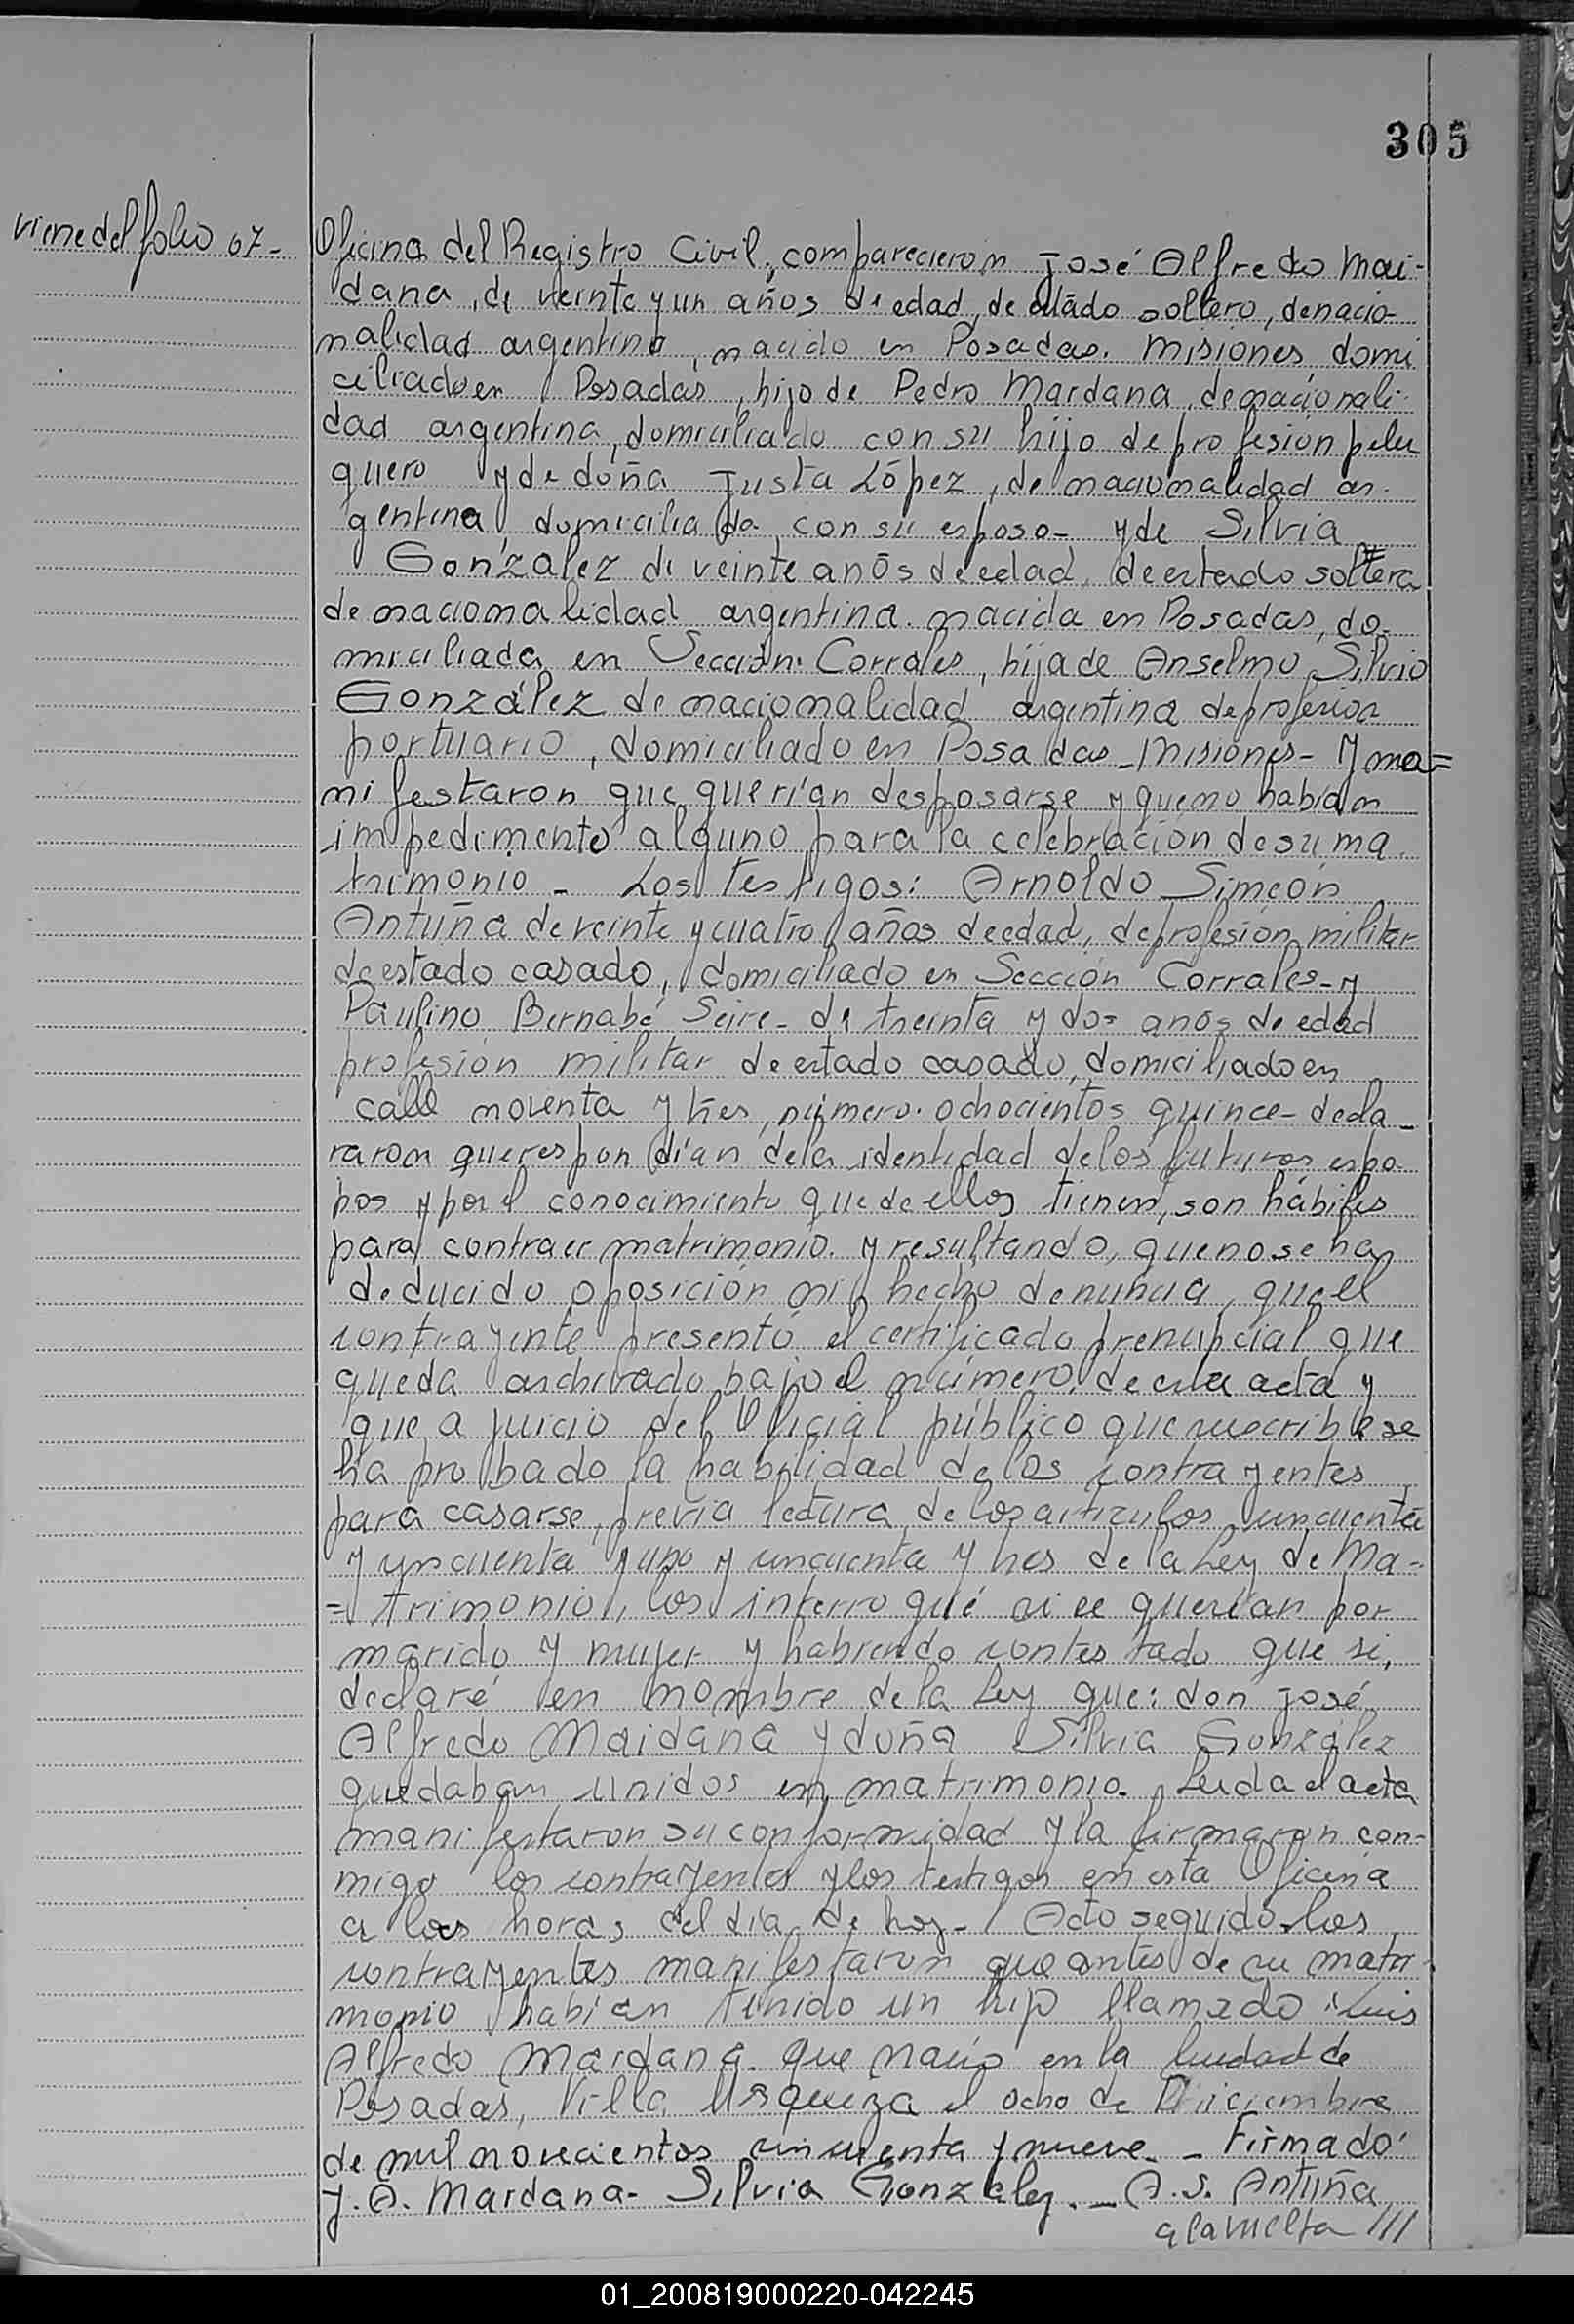 305
viene del folio 67-
Oficina del Registro Civil, comparecieron José Alfredo Mai-
dana, de veinte y un años de edad, de estado soltero, de nacio-
nalidad argentino, nacido en Posadas. Misiones domi
ciliado en Posadas, hijo de Pedro Maidana, de nacionali-
dad argentina, domiciliado con su hijo de profesión pelu
quero y de doña Justa López, de nacionalidad ar-
gentina, domiciliada con su esposo- y de Silvia
González de veinte anõs de edad, de estado soltera
de nacionalidad argentina. nacida en Posadas, do-
miciliada en Sección Corrales, hija de Anselmo Silvio
González de nacionalidad argentina de profesion
portuario, domiciliado en Posadas - Misiones - Y ma=
nifestaron que querían desposarse y que no habían
impedimento alguno para la celebración de su ma
trimonio - Los testigos: Arnoldo Simeón
Antuña de veinte y cuatro años de edad, de profesión militar
de estado casado, domiciliado en Sección Corrales - y
Paulino Bernabé Seire - de treinta y dos anos de edad
profesión militar de estado casado, domiciliado en
call noventa y tres, número. ochocientos quince - decla_
raron que respondían de la identidad de los futuros espo-
sos y por el conocimiento que de ellos tienen, son hábiles
para contraer matrimonio. y resultando, que no se han
deducido oposición ni hecho denuncia, que el
contrayente presentó el certificado prenupcial que
queda archivado bajo el número de esta acta y
que a juicio del Oficial público que suscribe se
ha probado la habilidad de los contrayentes
para casarse, previa lectura de los artículos cincuenta
y cincuenta y uno y cincuenta y tres de la Ley de Ma-
= trimonio, los interrogué si se querían por
marido y mujer y habiendo contestado que si,
declaré en nombre de la Ley que: don José
Alfredo Maidana y doña Silvia González
quedaban unidos en matrimonio. Leída el acta
manifestaron su conformidad y la firmaron con-
migo los contrayentes y los testigos en esta Oficina
a las horas del día de hoy - Acto seguido los
contrayentes manifestaron que antes de su matri-
monio habían tenido un hijo llamado: Luis
Alfredo Maidana. que nació en la ciudad de
Posadas, Villa Urquiza el ocho de Diciembre
de mil novecientos cincuenta y nueve. - Firmado:
J. A. Maidana - Silvia Gonzalez. - A. S. Antuña
a la vuelta ///
01_200819000220-042245